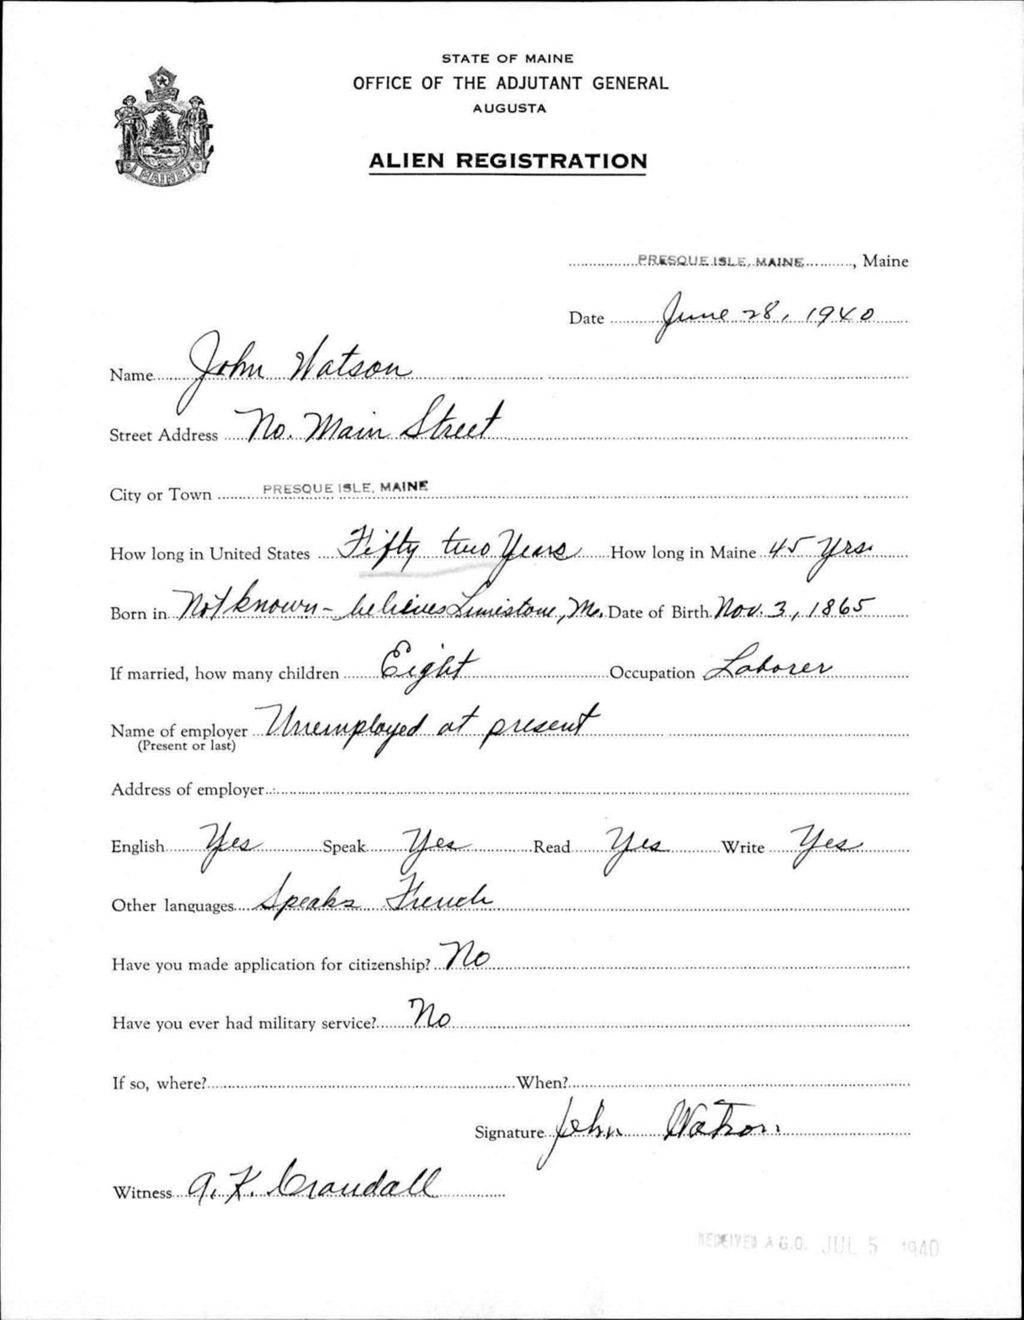 STATE OF MAINE
OFFICE OF THE ADJUTANT GENERAL
AUGUSTA
ALIEN REGISTRATION
MAINE
PRESQUE ISLE, MAINE, Maine
Date June 28, 1940
Name John Watson
Street Address No. Main Street
City or Town PRESQUE ISLE, MAINE
How long in United States Fifty two Years How long in Maine 45 yrs.
Born in Not known - believes Limestone, Me. Date of Birth Nov. 3, 1865
If married, how many children Eight Occupation Laborer
Name of employer Unemployed at present
(Present or last)
Address of employer
English Yes Speak Yes Read Yes Write Yes
Other languages Speaks French
Have you made application for citizenship? No
Have you ever had military service? No
If so, where? When?
Signature John Watson
Witness A. K. Crandall
RECEIVED A.G.O. JUL 5 1940